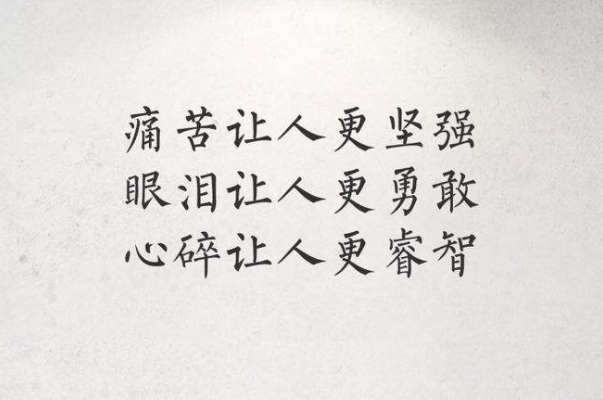 痛苦让人更坚强
眼泪让人更勇敢
心碎让人更睿智